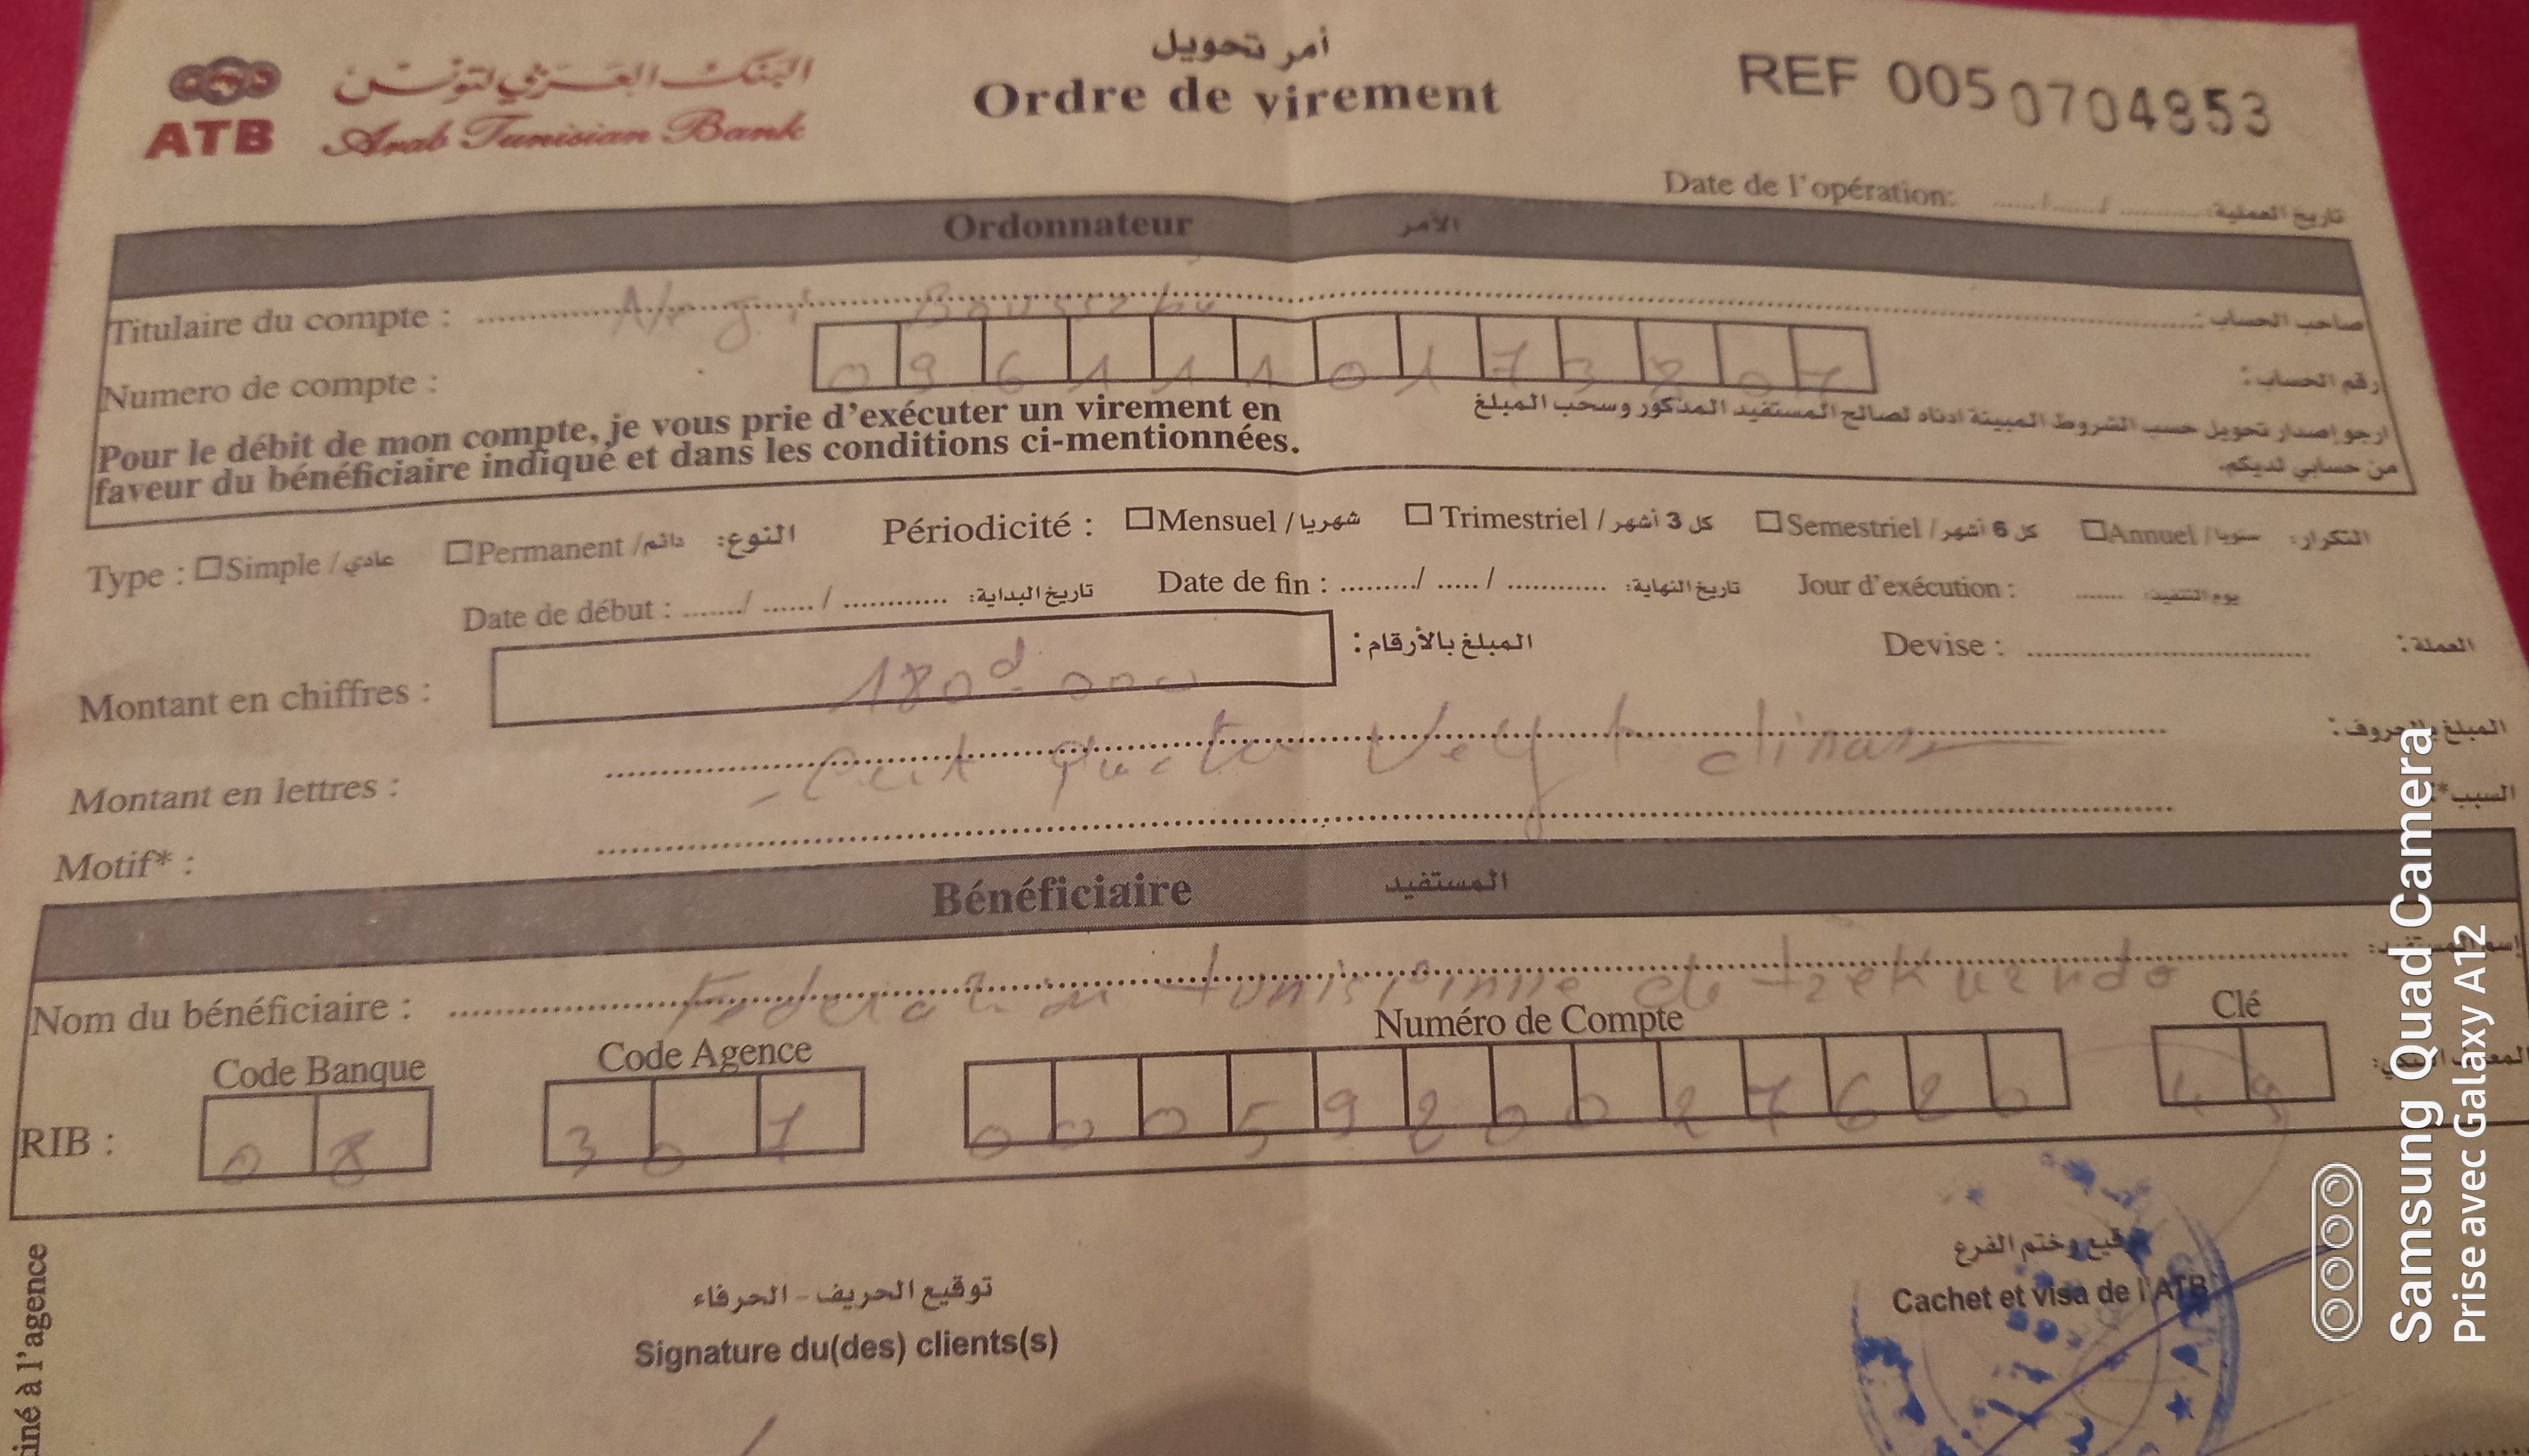 أمر تحويل
البنك العربي لتونس
Ordre de virement
REF 0050704853
ATB Arab Tunisian Bank
Date de l'opération: ...../...../.......... تاريخ العملية:
Ordonnateur الآمر
Titulaire du compte : صاحب الحساب :
Numero de compte : 0961110173807 رقم الحساب :
Pour le débit de mon compte, je vous prie d'exécuter un virement en
faveur du bénéficiaire indiqué et dans les conditions ci-mentionnées.
ارجو إصدار تحويل حسب الشروط المبينة ادناه لصالح المستفيد المذكور وسحب المبلغ
من حسابي لديكم.
Type : □Simple / عادي □Permanent / دائم النوع: Périodicité : □Mensuel / شهريا □Trimestriel / كل 3 أشهر □Semestriel / كل 6 أشهر □Annuel / سنويا التكرار:
Date de début : ......./ ....../ ............ تاريخ البداية: Date de fin : ........./ ...../ ............ تاريخ النهاية: Jour d'exécution : ....... يوم التنفيذ:
Montant en chiffres : 180d.000 المبلغ بالأرقام : Devise : العملة :
Montant en lettres : Cent quatre vingt dinars المبلغ بالحروف :
Motif* : السبب* :
Bénéficiaire المستفيد
Nom du bénéficiaire : Federation tunisienne de taekwando إسم المستفيد:
Code Banque Code Agence Numéro de Compte Clé
RIB : 08 301 0005920027620 49
توقيع الحريف - الحرفاء
Signature du(des) clients(s)
توقيع وختم الفرع
Cachet et visa de l'ATB
iné à l'agence
Samsung Quad Camera
Prise avec Galaxy A12